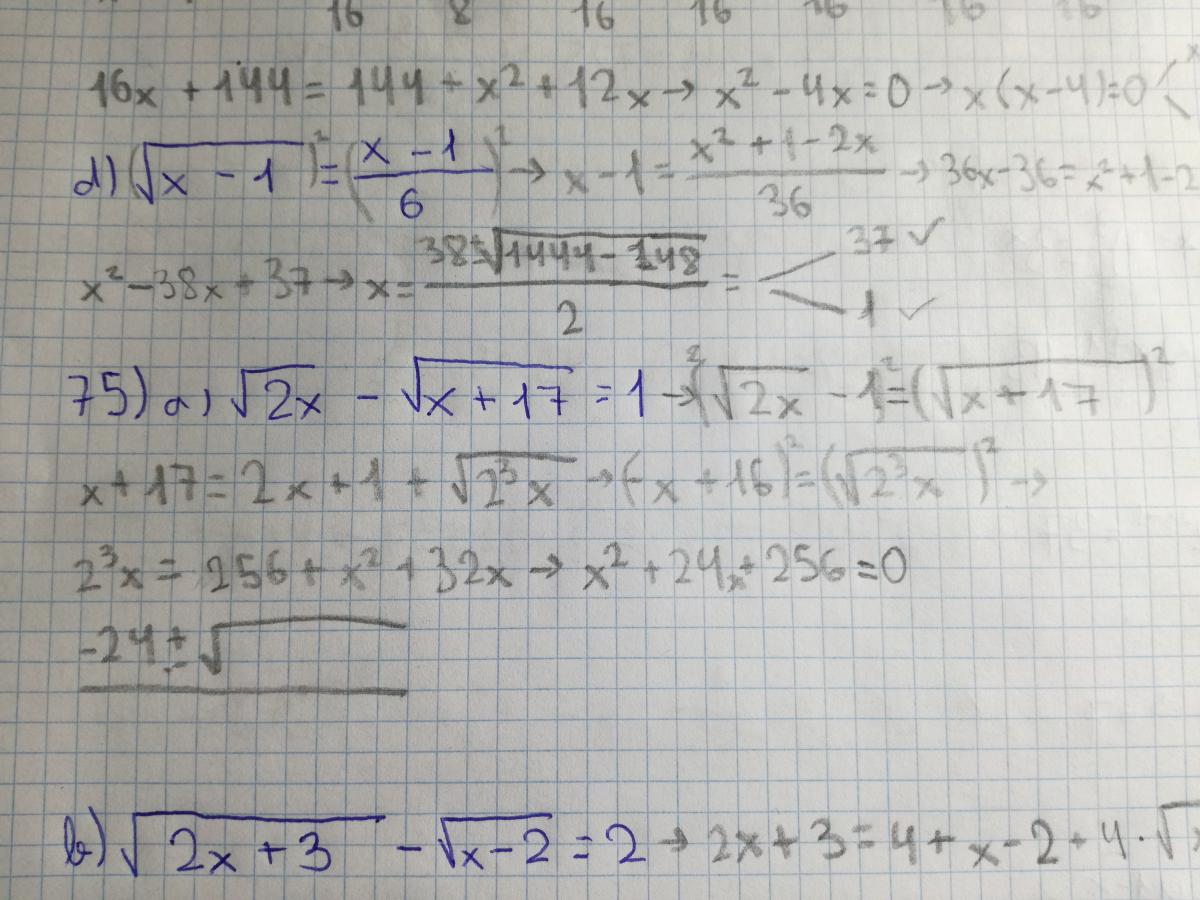 16 8 16 16 16 16 16
16x + 144 = 144 + x² + 12x → x² - 4x = 0 → x(x-4)=0
d) (√(x - 1))² = ((x - 1)/6)² → x - 1 = (x² + 1 - 2x)/36 → 36x - 36 = x² + 1 - 2
x² - 38x + 37 → x = (38 ± √(1444 - 148))/2 = 37 ✓ 1 ✓
75) a) √(2x) - √(x + 17) = 1 → (√(2x) - 1)² = (√(x + 17))²
x + 17 = 2x + 1 + √(2³x) → (-x + 16)² = (√(2³x))² →
2³x = 256 + x² + 32x → x² + 24x + 256 = 0
-24 ± √
b) √(2x + 3) - √(x - 2) = 2 → 2x + 3 = 4 + x - 2 + 4 · √